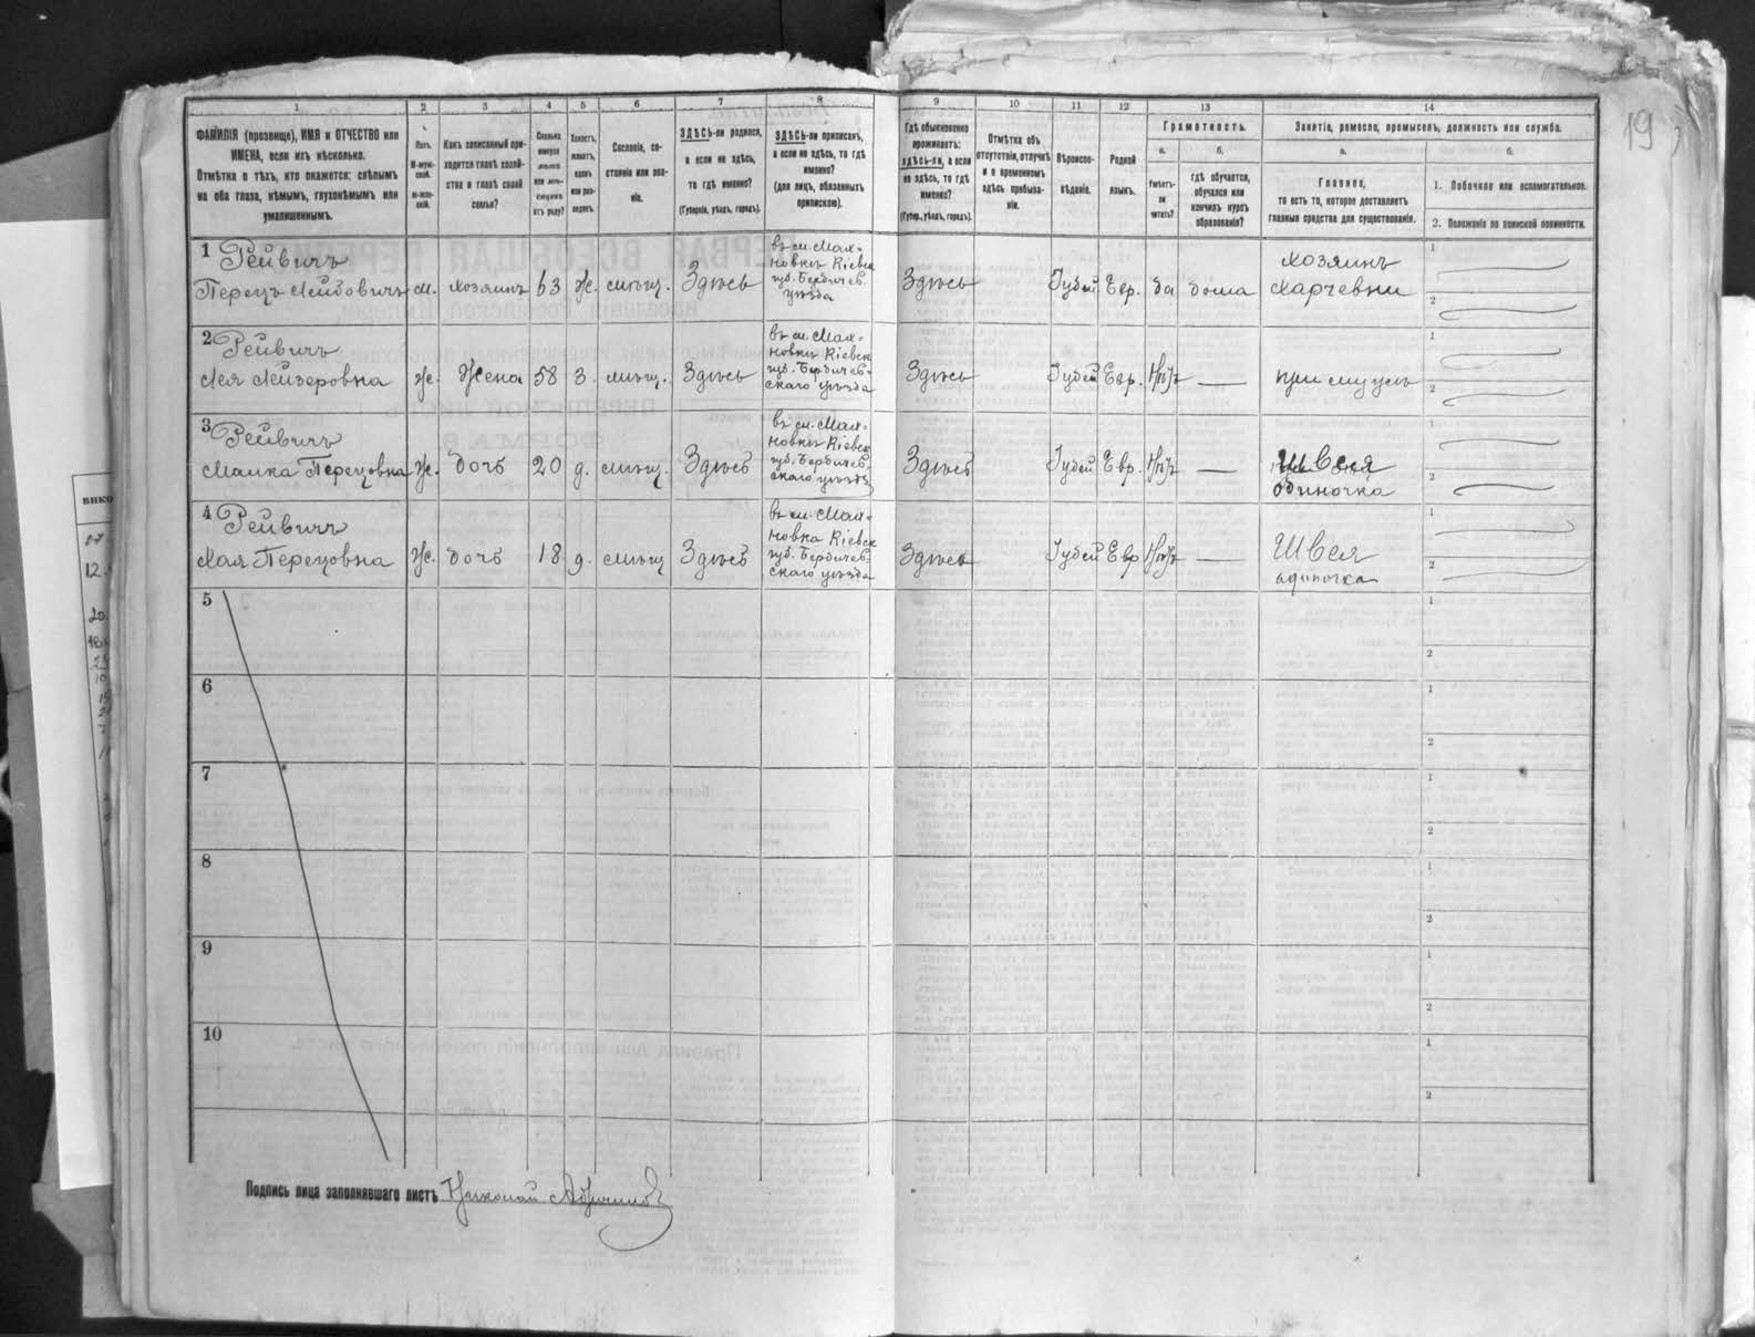 19
1
2
3
4
5
6
7
8
9
10
11
12
13
14
ФАМИЛІЯ (прозвище), ИМЯ и ОТЧЕСТВО или
ИМЕНА, если ихъ нѣсколько.
Отмѣтка о тѣхъ, кто окажется: слѣпымъ
на оба глаза, нѣмымъ, глухонѣмымъ или
умалишеннымъ.
Полъ.
М-муж-
ской.
Ж-жен-
скій.
Какъ записанный при-
ходится главѣ хозяй-
ства и главѣ своей
семьи?
Сколько
минуло
лѣтъ
или мѣ-
сяцевъ
отъ роду?
Холостъ,
женатъ,
вдовъ
или раз-
веденъ.
Сословіе, со-
стояніе или зва-
ніе.
ЗДѢСЬ-ли родился,
а если не здѣсь,
то гдѣ именно?
(Губернія, уѣздъ, городъ).
ЗДѢСЬ-ли приписанъ,
а если не здѣсь, то гдѣ
именно?
(для лицъ, обязанныхъ
припискою).
Гдѣ обыкновенно
проживаетъ:
здѣсь-ли, а если
не здѣсь, то гдѣ
именно?
(Губер., уѣздъ, городъ).
Отмѣтка объ
отсутствіи, отлучкѣ
и о временномъ
здѣсь пребыва-
ніи.
Вѣроиспо-
вѣданіе.
Родной
языкъ.
Грамотность.
а.
Умѣетъ-
ли
читать?
б.
гдѣ обучается,
обучался или
кончилъ курсъ
образованія?
Занятіе, ремесло, промыселъ, должность или служба.
а.
Главное,
то есть то, которое доставляетъ
главныя средства для существованія.
б.
1. Побочное или вспомогательное.
2. Положеніе по воинской повинности.
1 Рейвичъ
Перецъ Лейбовичъ м. хозяинъ 63 ж. мѣщ. Здѣсь
въ м. Мах-
новкѣ Кіевск
губ. Бердичев.
уѣзда
Здѣсь Іудей Евр. да дома
хозяинъ
харчевни
1
2
2 Рейвичъ
Лея Лейзеровна ж. жена 58 з. мѣщ. Здѣсь
въ м. Мах-
новкѣ Кіевск
губ. Бердичев-
скаго уѣзда
Здѣсь Іудей Евр. Нѣтъ —
при мужѣ
1
2
3 Рейвичъ
Малка Перецовна ж. дочь 20 д. мѣщ. Здѣсь
въ м. Мах-
новкѣ Кіевск
губ. Бердичев-
скаго уѣзда
Здѣсь Іудей Евр. Нѣтъ —
Швея
одиночка
1
2
4 Рейвичъ
Хая Перецовна ж. дочь 18 д. мѣщ Здѣсь
въ м. Мах-
новка Кіевск
губ. Бердичев-
скаго уѣзда
Здѣсь Іудей Евр Нѣтъ —
Швея
одиночка
1
2
5
1
2
6
1
2
7
1
2
8
1
2
9
1
2
10
1
2
Подпись лица заполнявшаго листъ